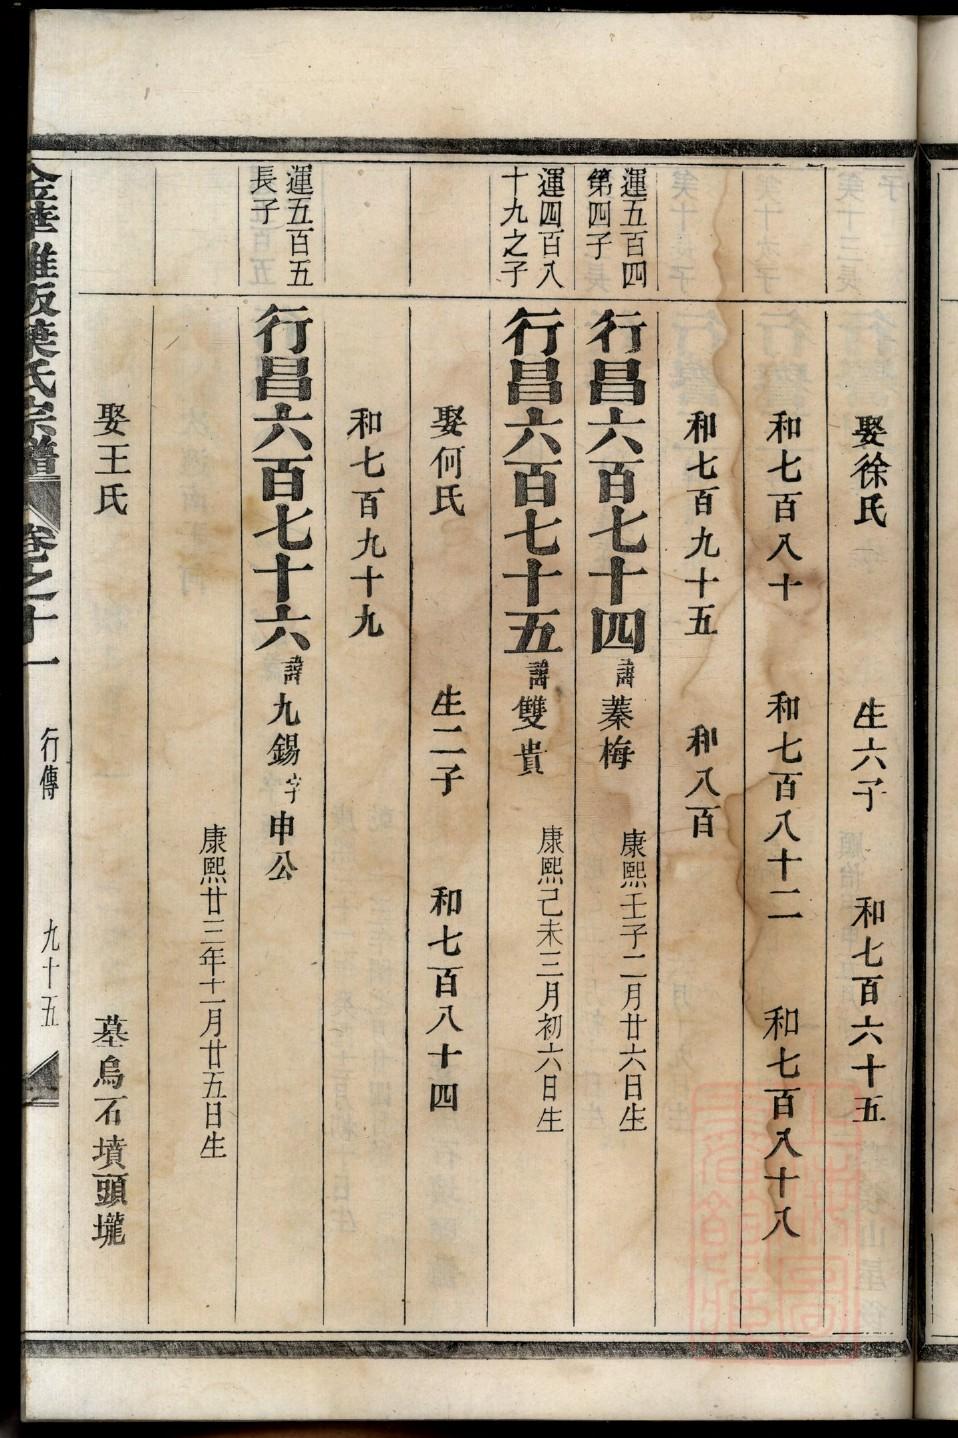 娶徐氏 生六子 和七百六十五
和七百八十 和七百八十二 和七百八十八
和七百九十五 和八百
運五百四
第四子
行昌六百七十四 諱蓁梅 康熙壬子二月廿六日生
運四百八
十九之子
行昌六百七十五 諱雙貴 康熙己未三月初六日生
娶何氏 生二子 和七百八十四
和七百九十九
運五百五
長子
行昌六百七十六 諱九錫 字申公
康熙廿三年十一月廿五日生
娶王氏 墓烏石墳頭壠
金華雅畈葉氏宗譜 卷之十一 行傳 九十五